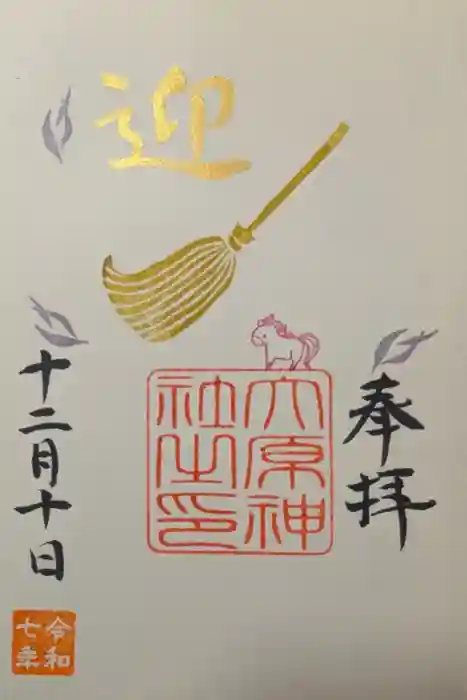 迎
奉拝
六原神
社之印
十二月十日
令和
七年